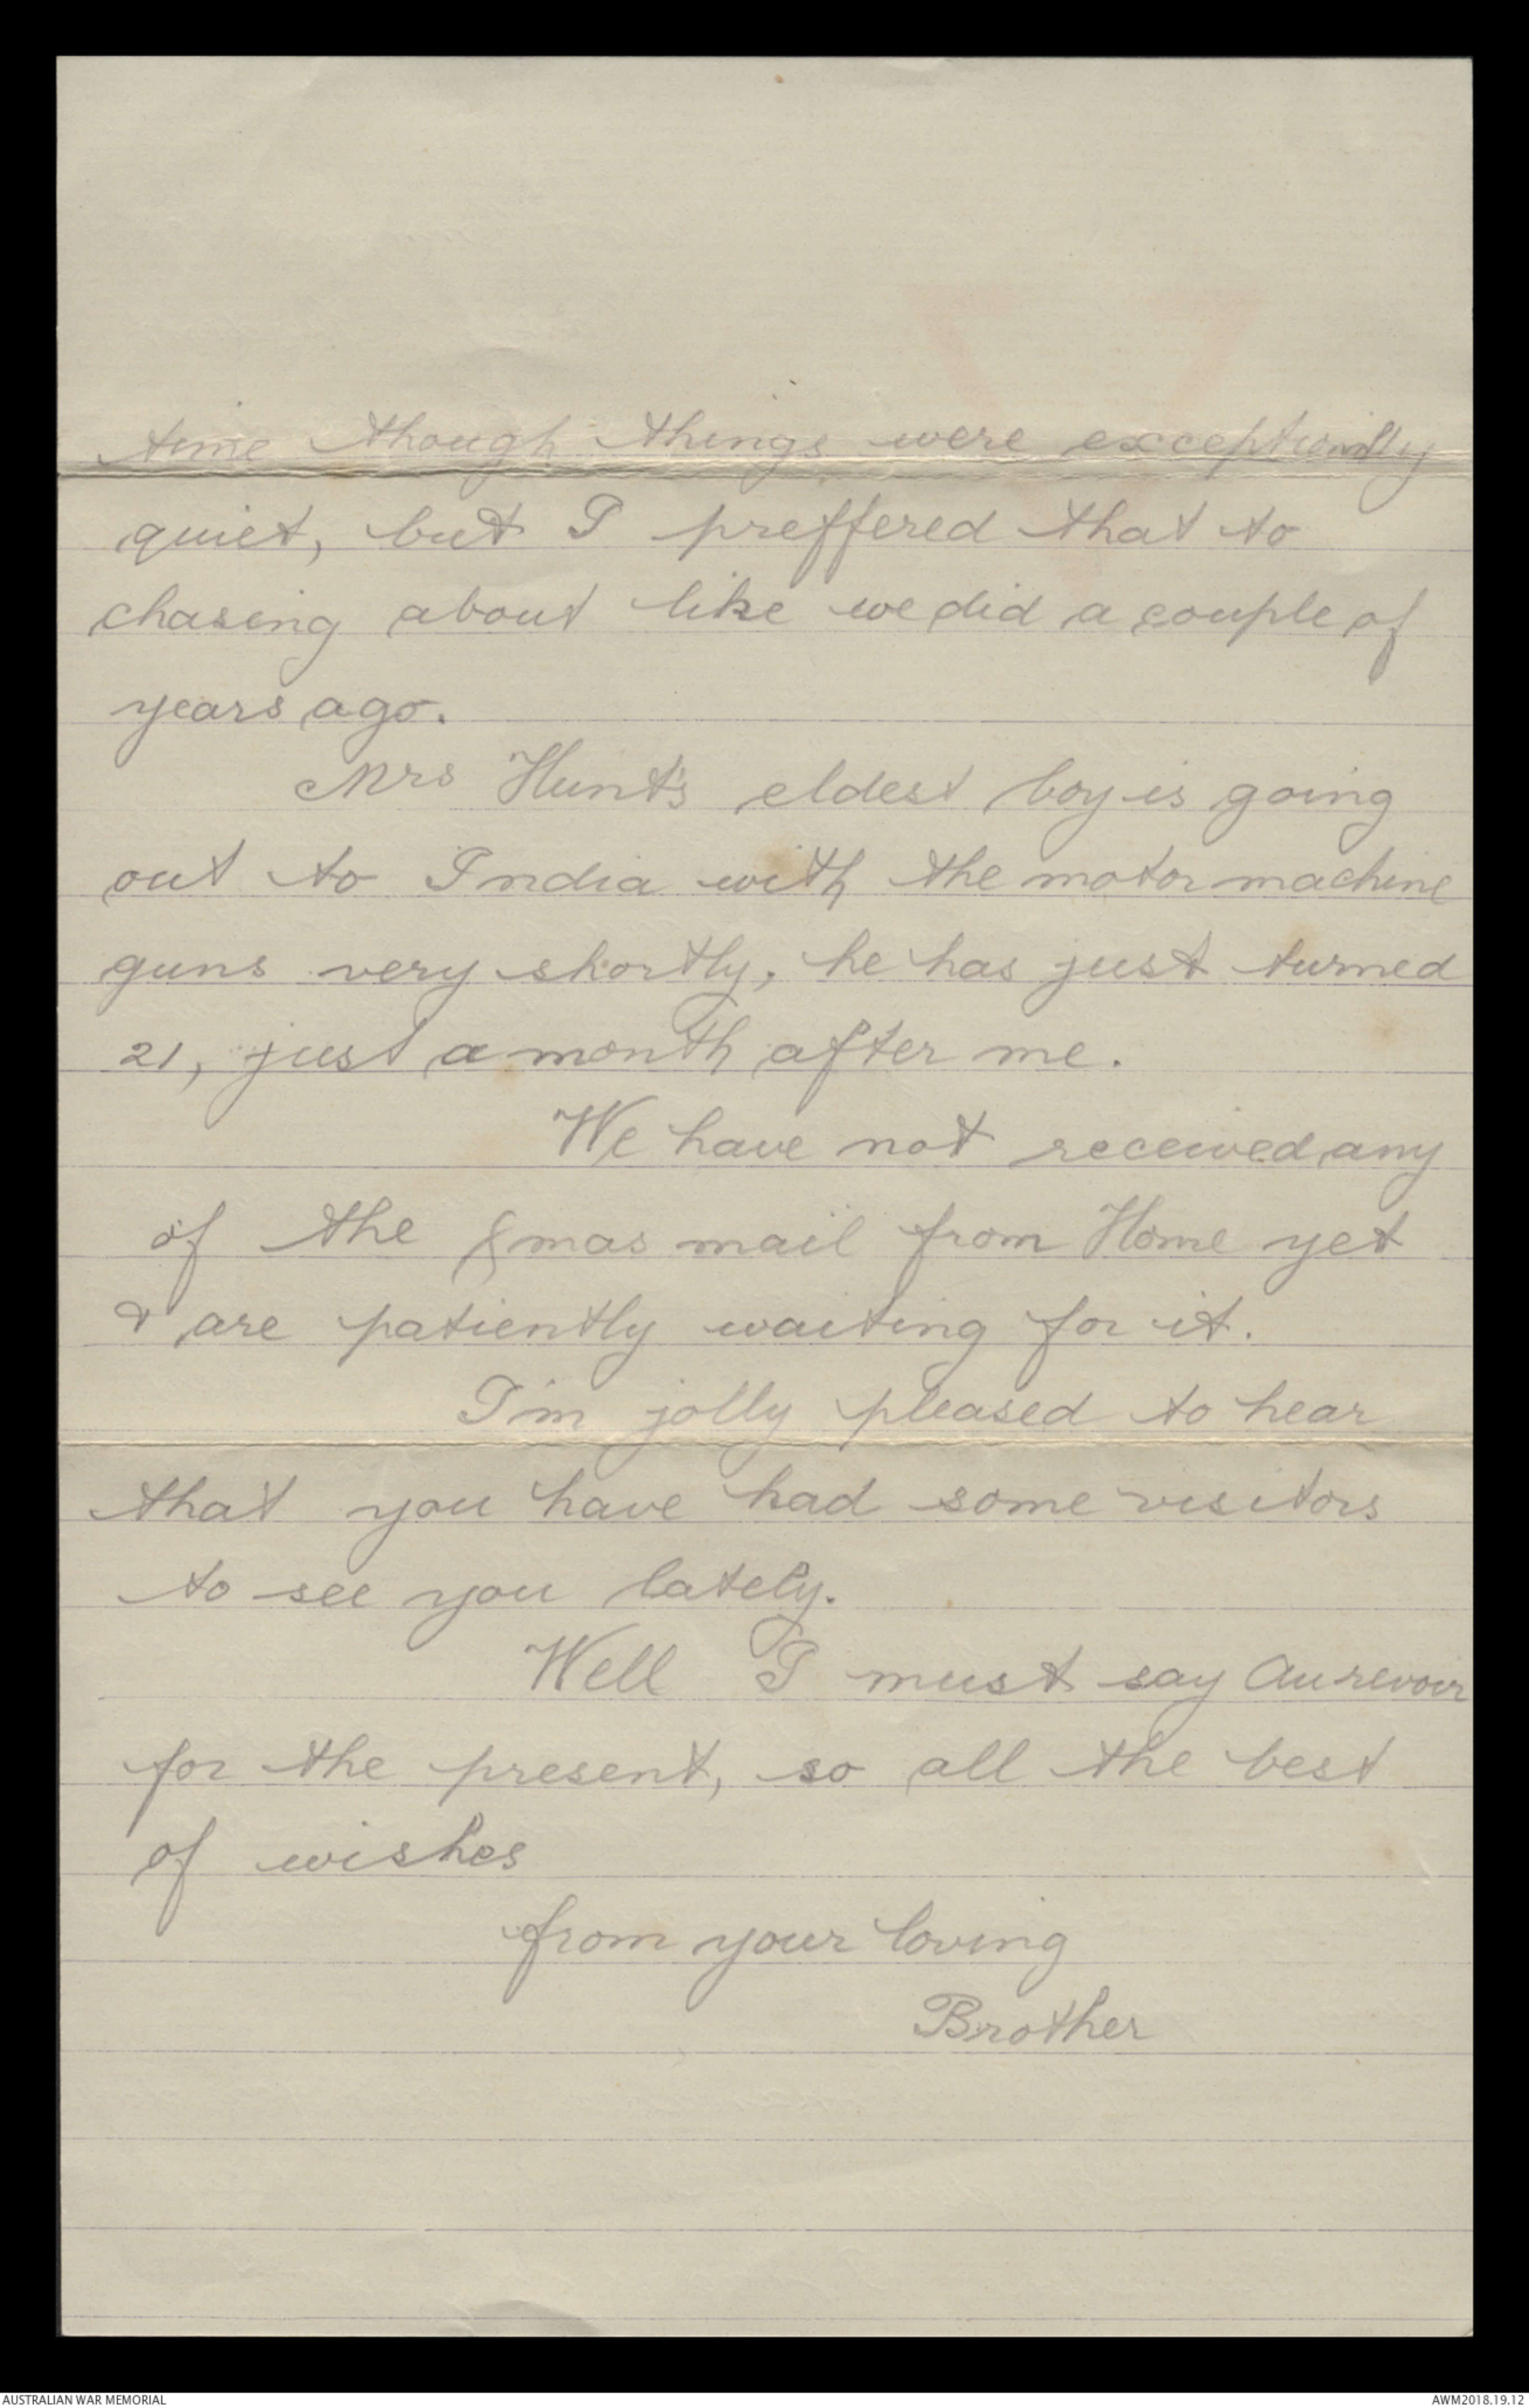 time though things were exceptionally
quiet, but I preffered that to
chasing about like we did a couple of
years ago.
Mrs Hunt's eldest boy is going
out to India with the motor machine
guns very shortly, he has just turned
21, just a month after me.
We have not received any
of the Xmas mail from Home yet
& are patiently waiting for it.
I'm jolly pleased to hear
that you have had some visitors
to see you lately.
Well I must say Au revoir
for the present, so all the best
of wishes
from your loving
Brother
AUSTRALIAN WAR MEMORIAL
AWM2018.19.12